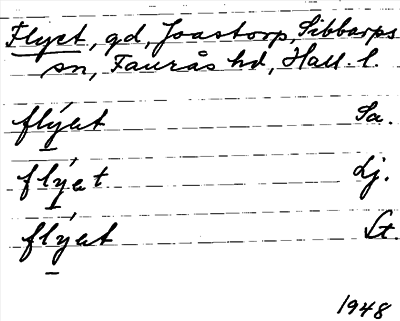 Flyet, gd, Joastorp, Sibbarps
sn, Faurås hd, Hall. l.
flýet Sa.
flýet Lj.
flýet St.
1948